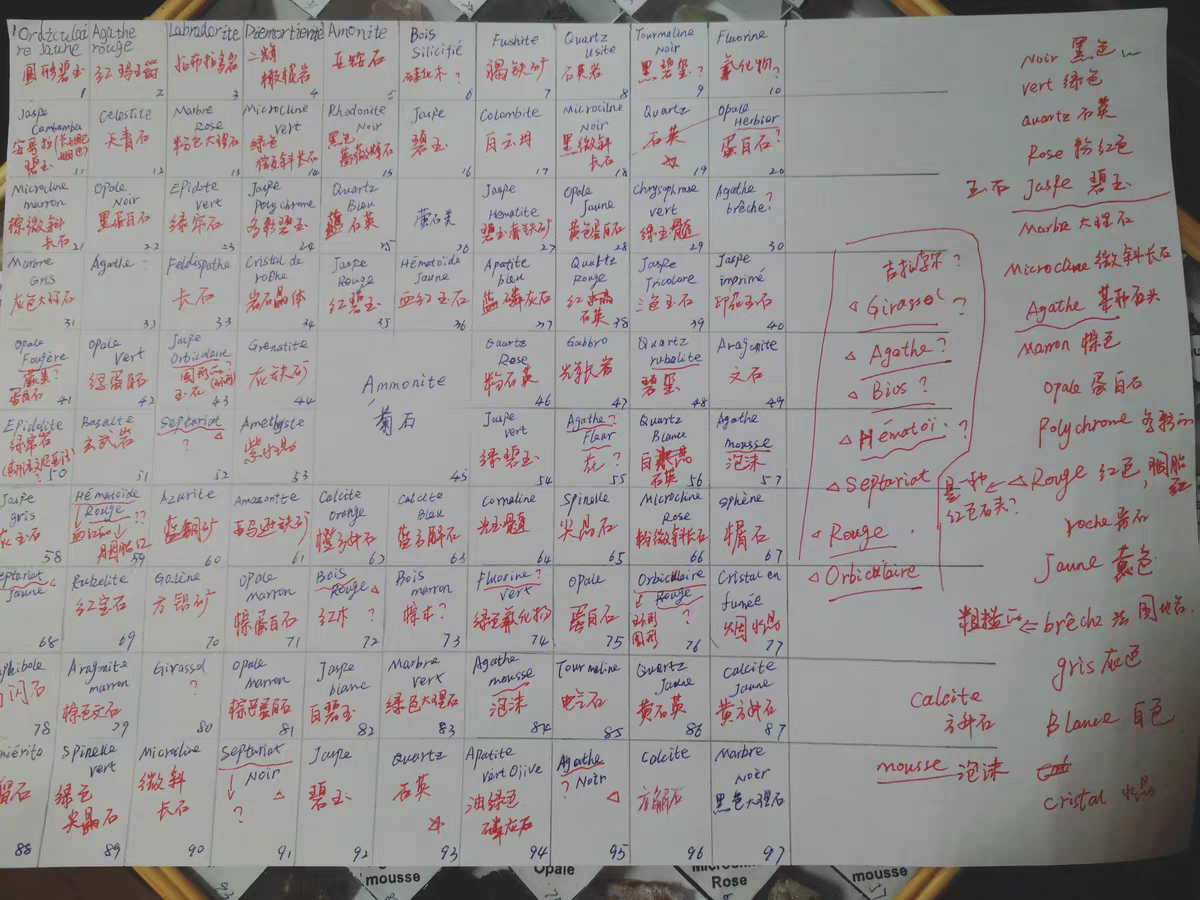 1
Agathe
rouge
红玛瑙
2
Labradorite
拉布拉多岩
3
Dumortierite
4
Amonite
5
Bois
Silicifié
硅化木?
6
Fushite
褐铁矿
7
Quartz
usite
石英岩
8
Tourmaline
Noir
黑碧玺?
9
Fluorine
氟化物?
10
Jaspe
Cambamba
碧玉
11
Celestite
天青石
12
Marbre
Rose
粉色大理石
13
Microcline
vert
绿色
微斜长石
14
Rhodonite
Noir
黑色
蔷薇辉石
15
Jaspe
碧玉
16
Colombite
白云母
17
Microcline
Noir
黑微斜
长石
18
Quartz
石英
19
Opale
Herbior
蛋白石?
20
Microcline
marron
棕微斜
长石
21
Opale
Noir
黑蛋白石
22
Epidote
vert
绿帘石
23
Jaspe
Polychrome
多彩碧玉
24
Quartz
Bleu
蓝石英
25
26
Jaspe
Hematite
碧玉赤铁矿
27
Opale
Jaune
黄色蛋白石
28
Chrysophrase
vert
绿玉髓
29
Agathe
brêche?
30
Marbre
Gris
灰色大理石
31
Agathe?
32
Feldispathe
长石
33
Cristal de
roche
岩石晶体
34
Jaspe
Rouge
红碧玉
35
Hématoïde
Jaune
血红玉石
36
Apatite
bleu
蓝磷灰石
37
Quartz
Rouge
石英
38
Jaspe
Tricolore
三色玉石
39
Jaspe
imprimé
印花玉石
40
Opale
Fougère
蕨类?
蛋白石
41
Opale
vert
绿蛋白石
42
Jaspe
Orbiculaire
玉石
43
Grenatite
灰铁矿
44
Ammonite
菊石
45
Quartz
Rose
粉石英
46
Gabbro
光辉长岩
47
Quartz
rubelite
碧玺
48
Aragonite
文石
49
Epidolite
绿帘岩
50
Basalte
玄武岩
51
Septariat
?
52
Amethyste
紫水晶
53
Jaspe
vert
绿碧玉
54
Agathe?
Fleur
花?
55
Quartz
Blanc
石英
56
Agathe
mousse
泡沫
57
Jaspe
gris
灰玉石
58
Hématoide
Rouge ??
血红和
胭脂红
59
Azurite
蓝铜矿
60
Amazonite
亚马逊铁矿
61
Calcite
orange
橙方解石
62
Calcite
Bleu
蓝方解石
63
Cornaline
光玉髓
64
Spinelle
尖晶石
65
Microcline
Rose
粉微斜长石
66
Sphène
榍石
67
eptariat
Jaune
68
Rubelite
红宝石
69
Galène
方铅矿
70
Opale
marron
棕蛋白石
71
Bois
Rouge
红木?
72
Bois
marron
棕木?
73
Fluorine?
vert
绿色氟化物
74
Opale
蛋白石
75
Orbiculaire
Rouge
?
圆形
76
Cristal en
fumée
烟水晶
77
phibole
闪石
78
Aragonite
marron
棕色文石
79
Girassol
?
80
Opale
marron
81
Jaspe
blanc
白碧玉
82
Marbre
vert
绿色大理石
83
Agathe
mousse
泡沫
84
Tourmaline
电气石
85
Quartz
Jaune
黄石英
86
Calcite
Jaune
黄方解石
87
88
Spinelle
vert
绿色
尖晶石
89
Microcline
微斜
长石
90
Septariat
Noir
?
91
Jaspe
碧玉
92
Quartz
石英
93
Apatite
vert Ojive
油绿色
磷灰石
94
Agathe
? Noir
95
Calcite
方解石
96
Marbre
Noir
黑色大理石
97
Girassol ?
Agathe?
Bios?
Hématoi. ?
Septariat
Rouge
Orbiculaire
Noir 黑色
vert 绿色
Quartz 石英
Rose 粉红色
玉石 Jaspe 碧玉
Marbre 大理石
Microcline 微斜长石
Agathe
Marron 棕色
Opale 蛋白石
Polychrome 多彩的
是一种 ← Rouge 红色,胭脂红
红色石头?
roche 岩石
Jaune 黄色
brêche
gris 灰色
Calcite
方解石
Blanc 白色
mousse 泡沫
Cristal 水晶
mousse
Opale
Rose
mousse